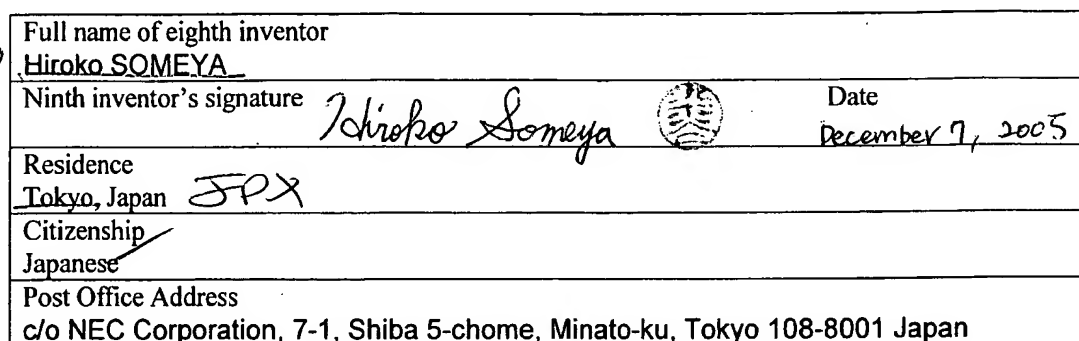 Full name of eighth inventor
Hiroko SOMEYA
Ninth inventor's signature Hiroko Someya Date
December 7, 2005
Residence
Tokyo, Japan JPX
Citizenship
Japanese
Post Office Address
c/o NEC Corporation, 7-1, Shiba 5-chome, Minato-ku, Tokyo 108-8001 Japan